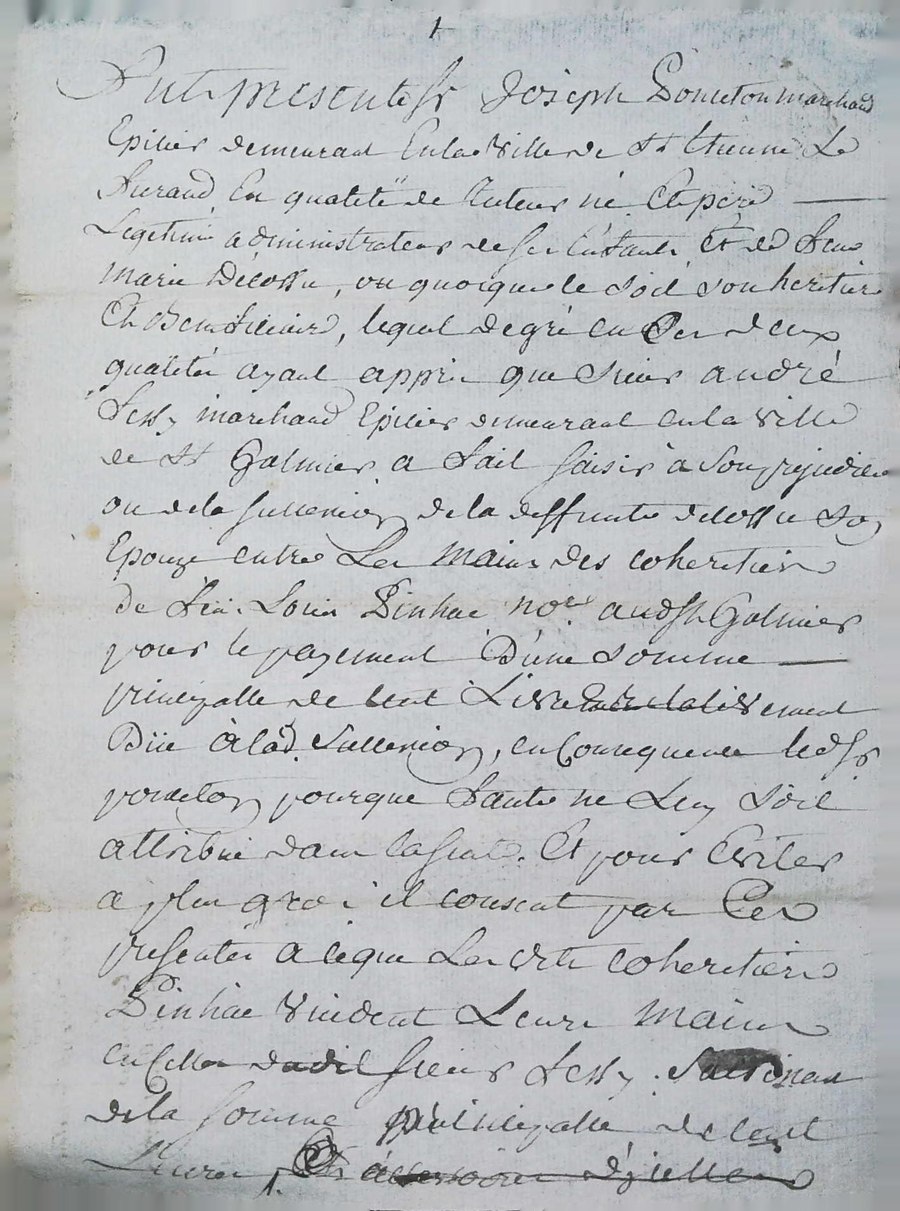 1
Fut present sr Joseph Ponceton marchand
Epicier demeurant En la ville de St Etienne Le
Furand, En qualité de tuteur né Et pere
Legitime administrateur de ses Enfants, Et de feue
marie Décossu, ou quoique le soit son heritier
Et Beneficiere, lequel de gré en Ces deux
qualités ayant appris que sieur andré
Lessy marchand Epicier demeurant en la ville
de St Galmier a fait saisir a son prejudice
ou de la succession de la deffunte decossu son
Epouze entre Les mains des coheritiers
de feu Louis Pinhac nore. audst Galmier
pour le payement D'une somme
principalle de cent Livres
Düe à lad. succession, en consequence ledsr
ponceton pour que faute ne Luy soit
attribué dans la suite. Et pour Eviter
a plus grds. il consent par Ces
presentes a ce que Les dts coheritiers
Pinhac Vuident Leurs mains
en celles dudit sieur Lessy.
de la somme principalle de cent
Livres,